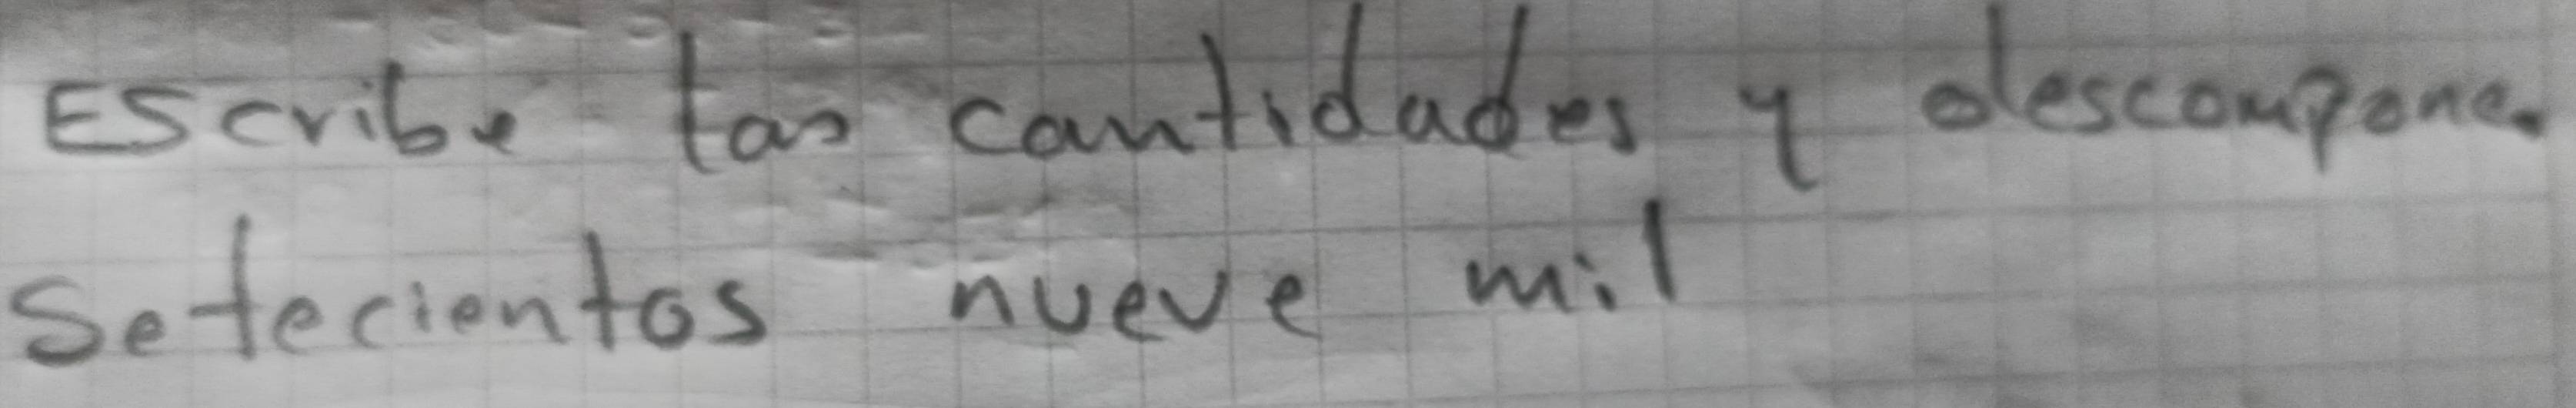 Escribe las cantidades y descompone.
Setecientos nueve mil